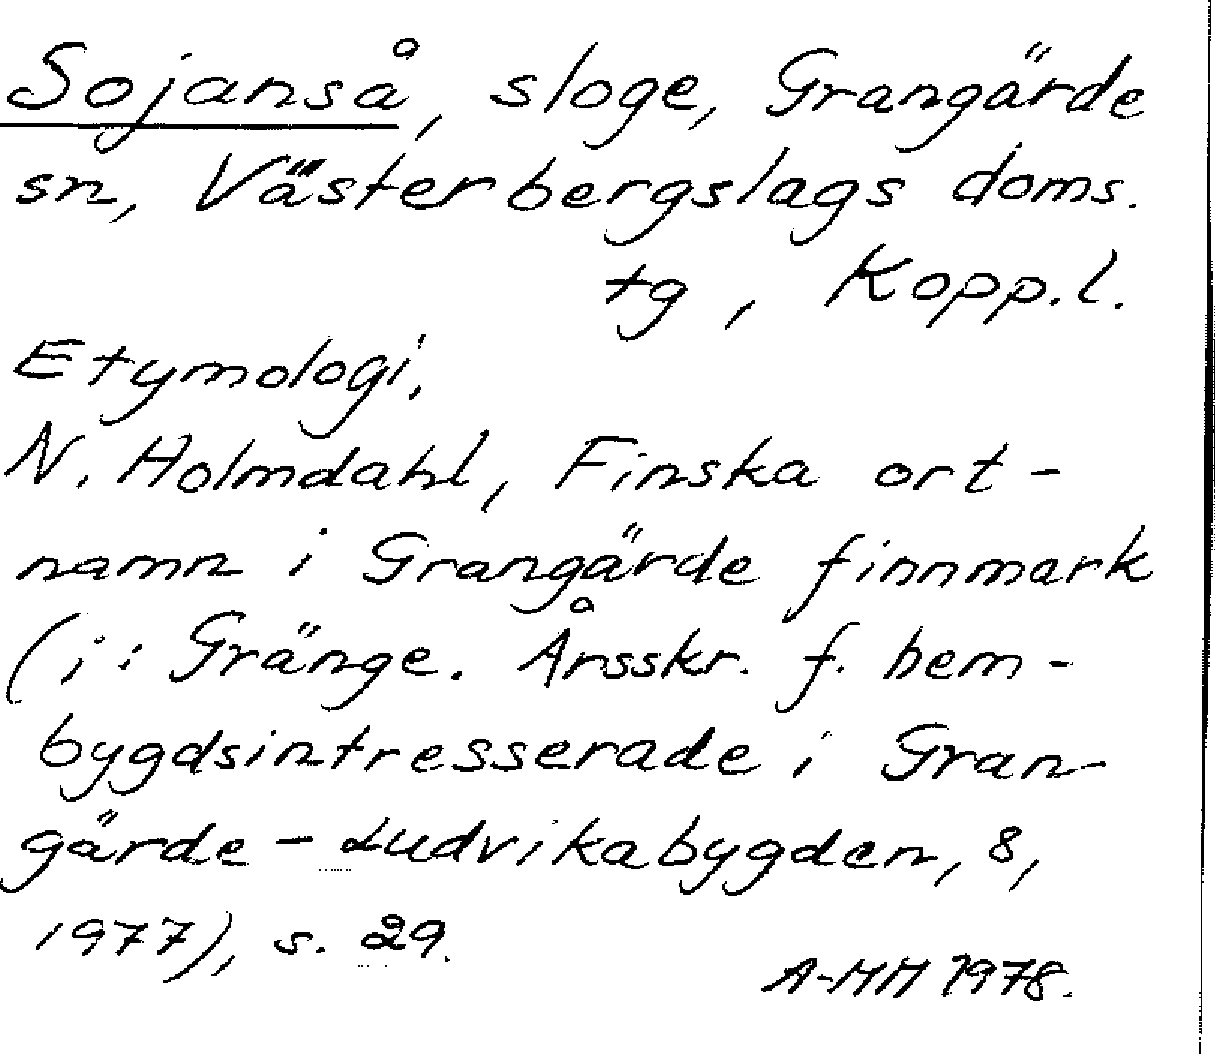 Sojanså, sloge, Grangärde
sn, Västerbergslags doms.
tg, Kopp.l.
Etymologi.
N. Holmdahl, Finska ort-
namn i Grangärde finnmark
(i: Gränge. Årsskr. f. hem-
bygdsintresserade i Gran-
gärde - Ludvikabygden, 8,
1977), s. 29.
A-MM 1978.